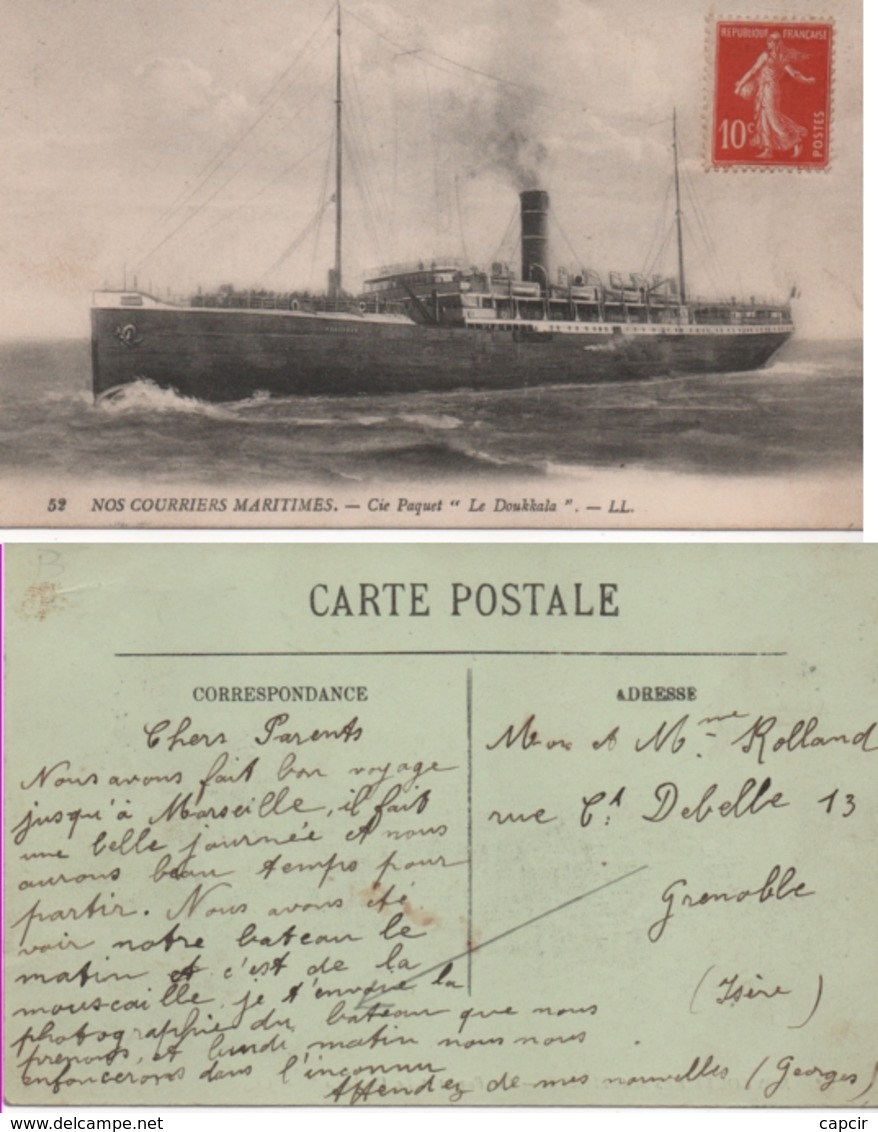 REPUBLIQUE FRANÇAISE
10c
POSTES
52 NOS COURRIERS MARITIMES. — Cie Paquet " Le Doukkala ". — LL.
CARTE POSTALE
CORRESPONDANCE
ADRESSE
Chers Parents
Nous avons fait bon voyage
jusqu'à Marseille, il fait
une belle journée et nous
aurons beau temps pour
partir. Nous avons été
voir notre bateau le
matin et c'est de la
mouscaille, je t'envoie la
photographie du bateau que nous
prenons, et lundi matin nous nous
enfoncerons dans l'inconnu
Attendez de mes nouvelles (Georges)
Mon et Mme Rolland
rue Ct Debelle 13
Grenoble
(Isère)
© www.delcampe.net
capcir